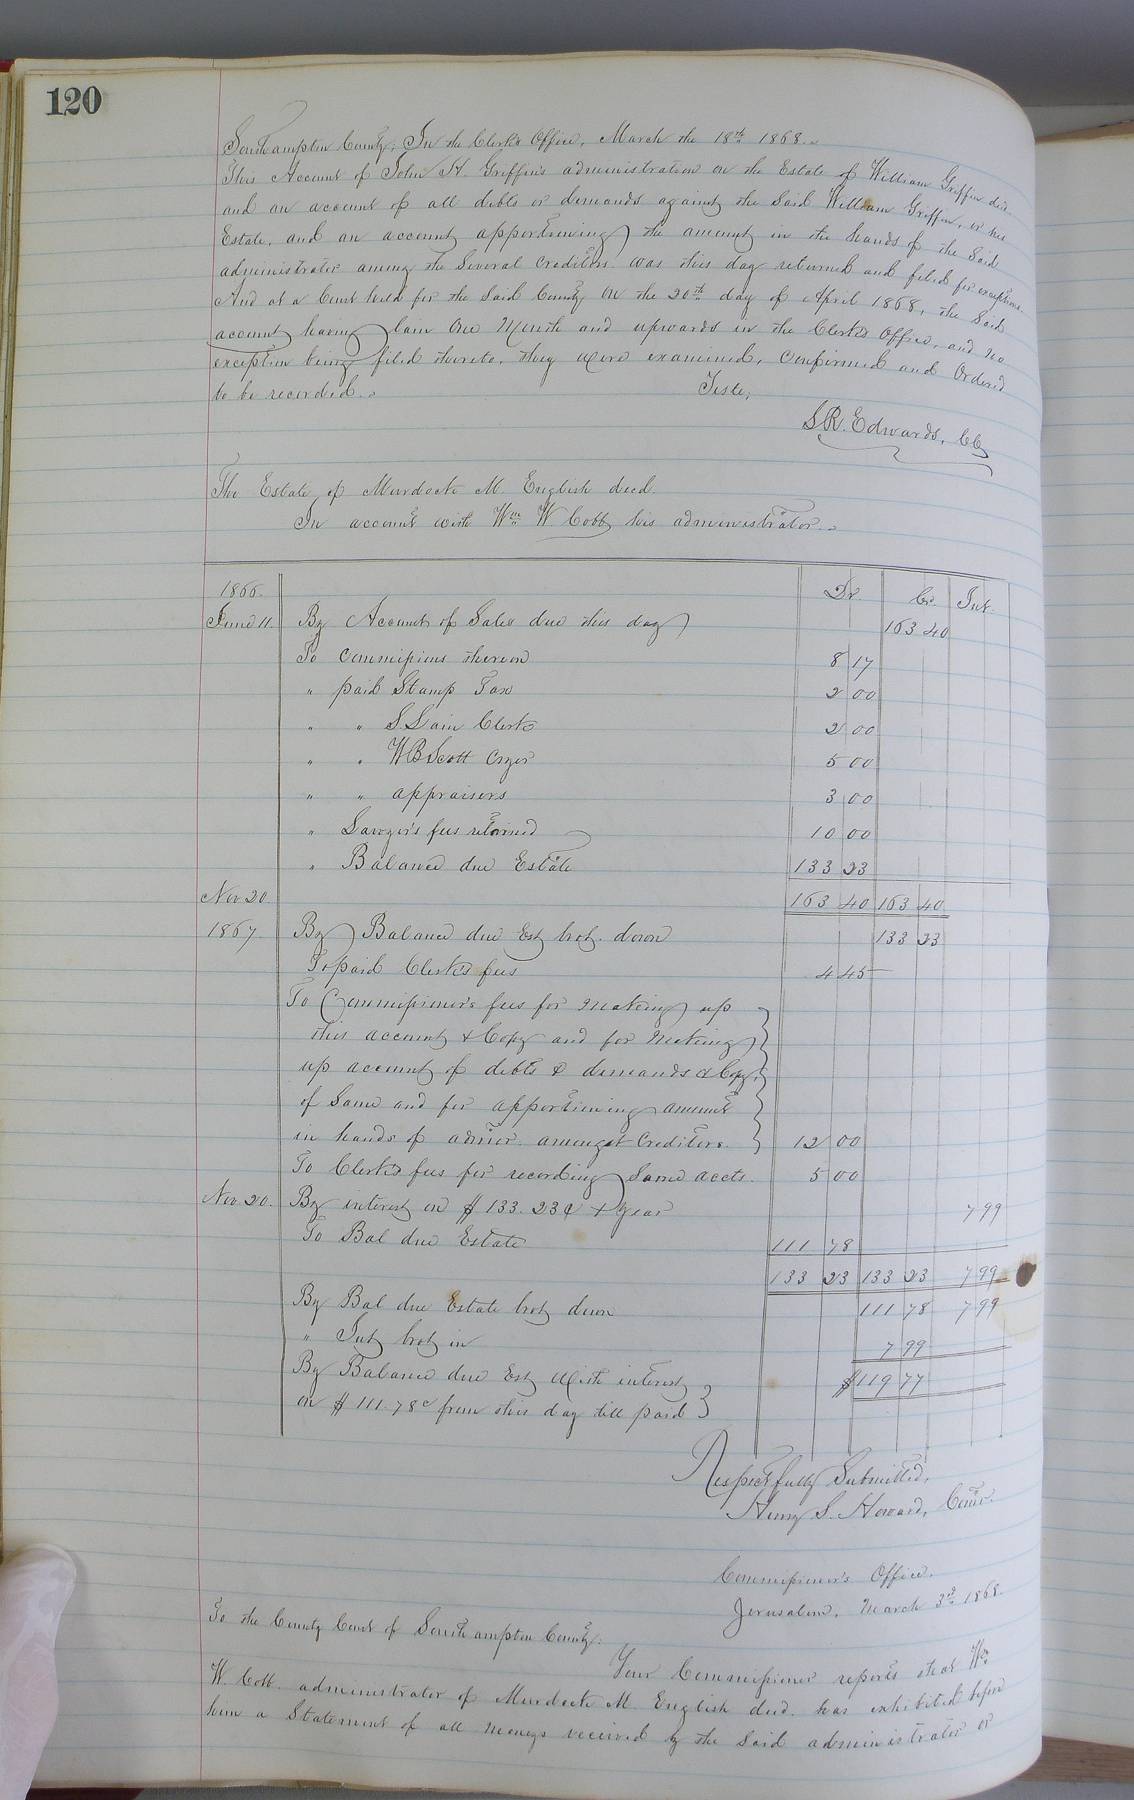 120
Southampton County; In the Clerk's Office, March the 18th 1868.
This Account of John H. Griffin's administration on the Estate of William Griffin dec.
and an account of all debts or demands against the Said William Griffin, or his
Estate, and an account apportioning the amount in the hands of the Said
administrator among the Several Creditors was this day returned and filed for exceptions.
And at a Court held for the Said County on the 20th day of April 1868, the Said
account having lain One Month and upwards in the Clerk's Office, and no
exception being filed thereto, they were examined, Confirmed and Ordered
to be recorded.
Teste,
S. R. Edwards, CC
The Estate of Murdock M. English decd.
In account with Wm W Cobb his administrator.
1866. Dr. Cr. Int.
June 11. By Account of Sales due this day 163 40
To Commissions thereon 8 17
" paid Stamp Tax 2 00
" " S Lain Clerk 2 00
" " W B Scott Cryer 5 00
" " appraisers 3 00
" Lawyer's fees retained 10 00
" Balance due Estate 133 23
Nov 20. 163 40 163 40
1867. By Balance due Est brot. down 133 23
To paid Clerk's fees 4 45
To Commissioner's fees for making up
this account & Copy and for making
up account of debts & demands & Copy
of Same and for apportioning amount
in hands of admor. amongst Creditors. 12 00
To Clerk's fees for recording Same accts. 5 00
Nov. 20. By interest on $133.23¢ 1 year 7 99
To Bal due Estate 111 78
133 23 133 23 7 99
By Bal due Estate brot down 111 78 7 99
" Int brot in 7 99
By Balance due Est with interest $119 77
on $111.78c from this day till paid
Respectfully Submitted,
Henry S. Howard, Comr.
Commissioner's Office.
Jerusalem, March 3rd 1868.
To the County Court of Southampton County:
Your Commissioner reports that Wm
W. Cobb administrator of Murdock M. English decd. has exhibited before
him a Statement of all moneys received by the Said administrator or